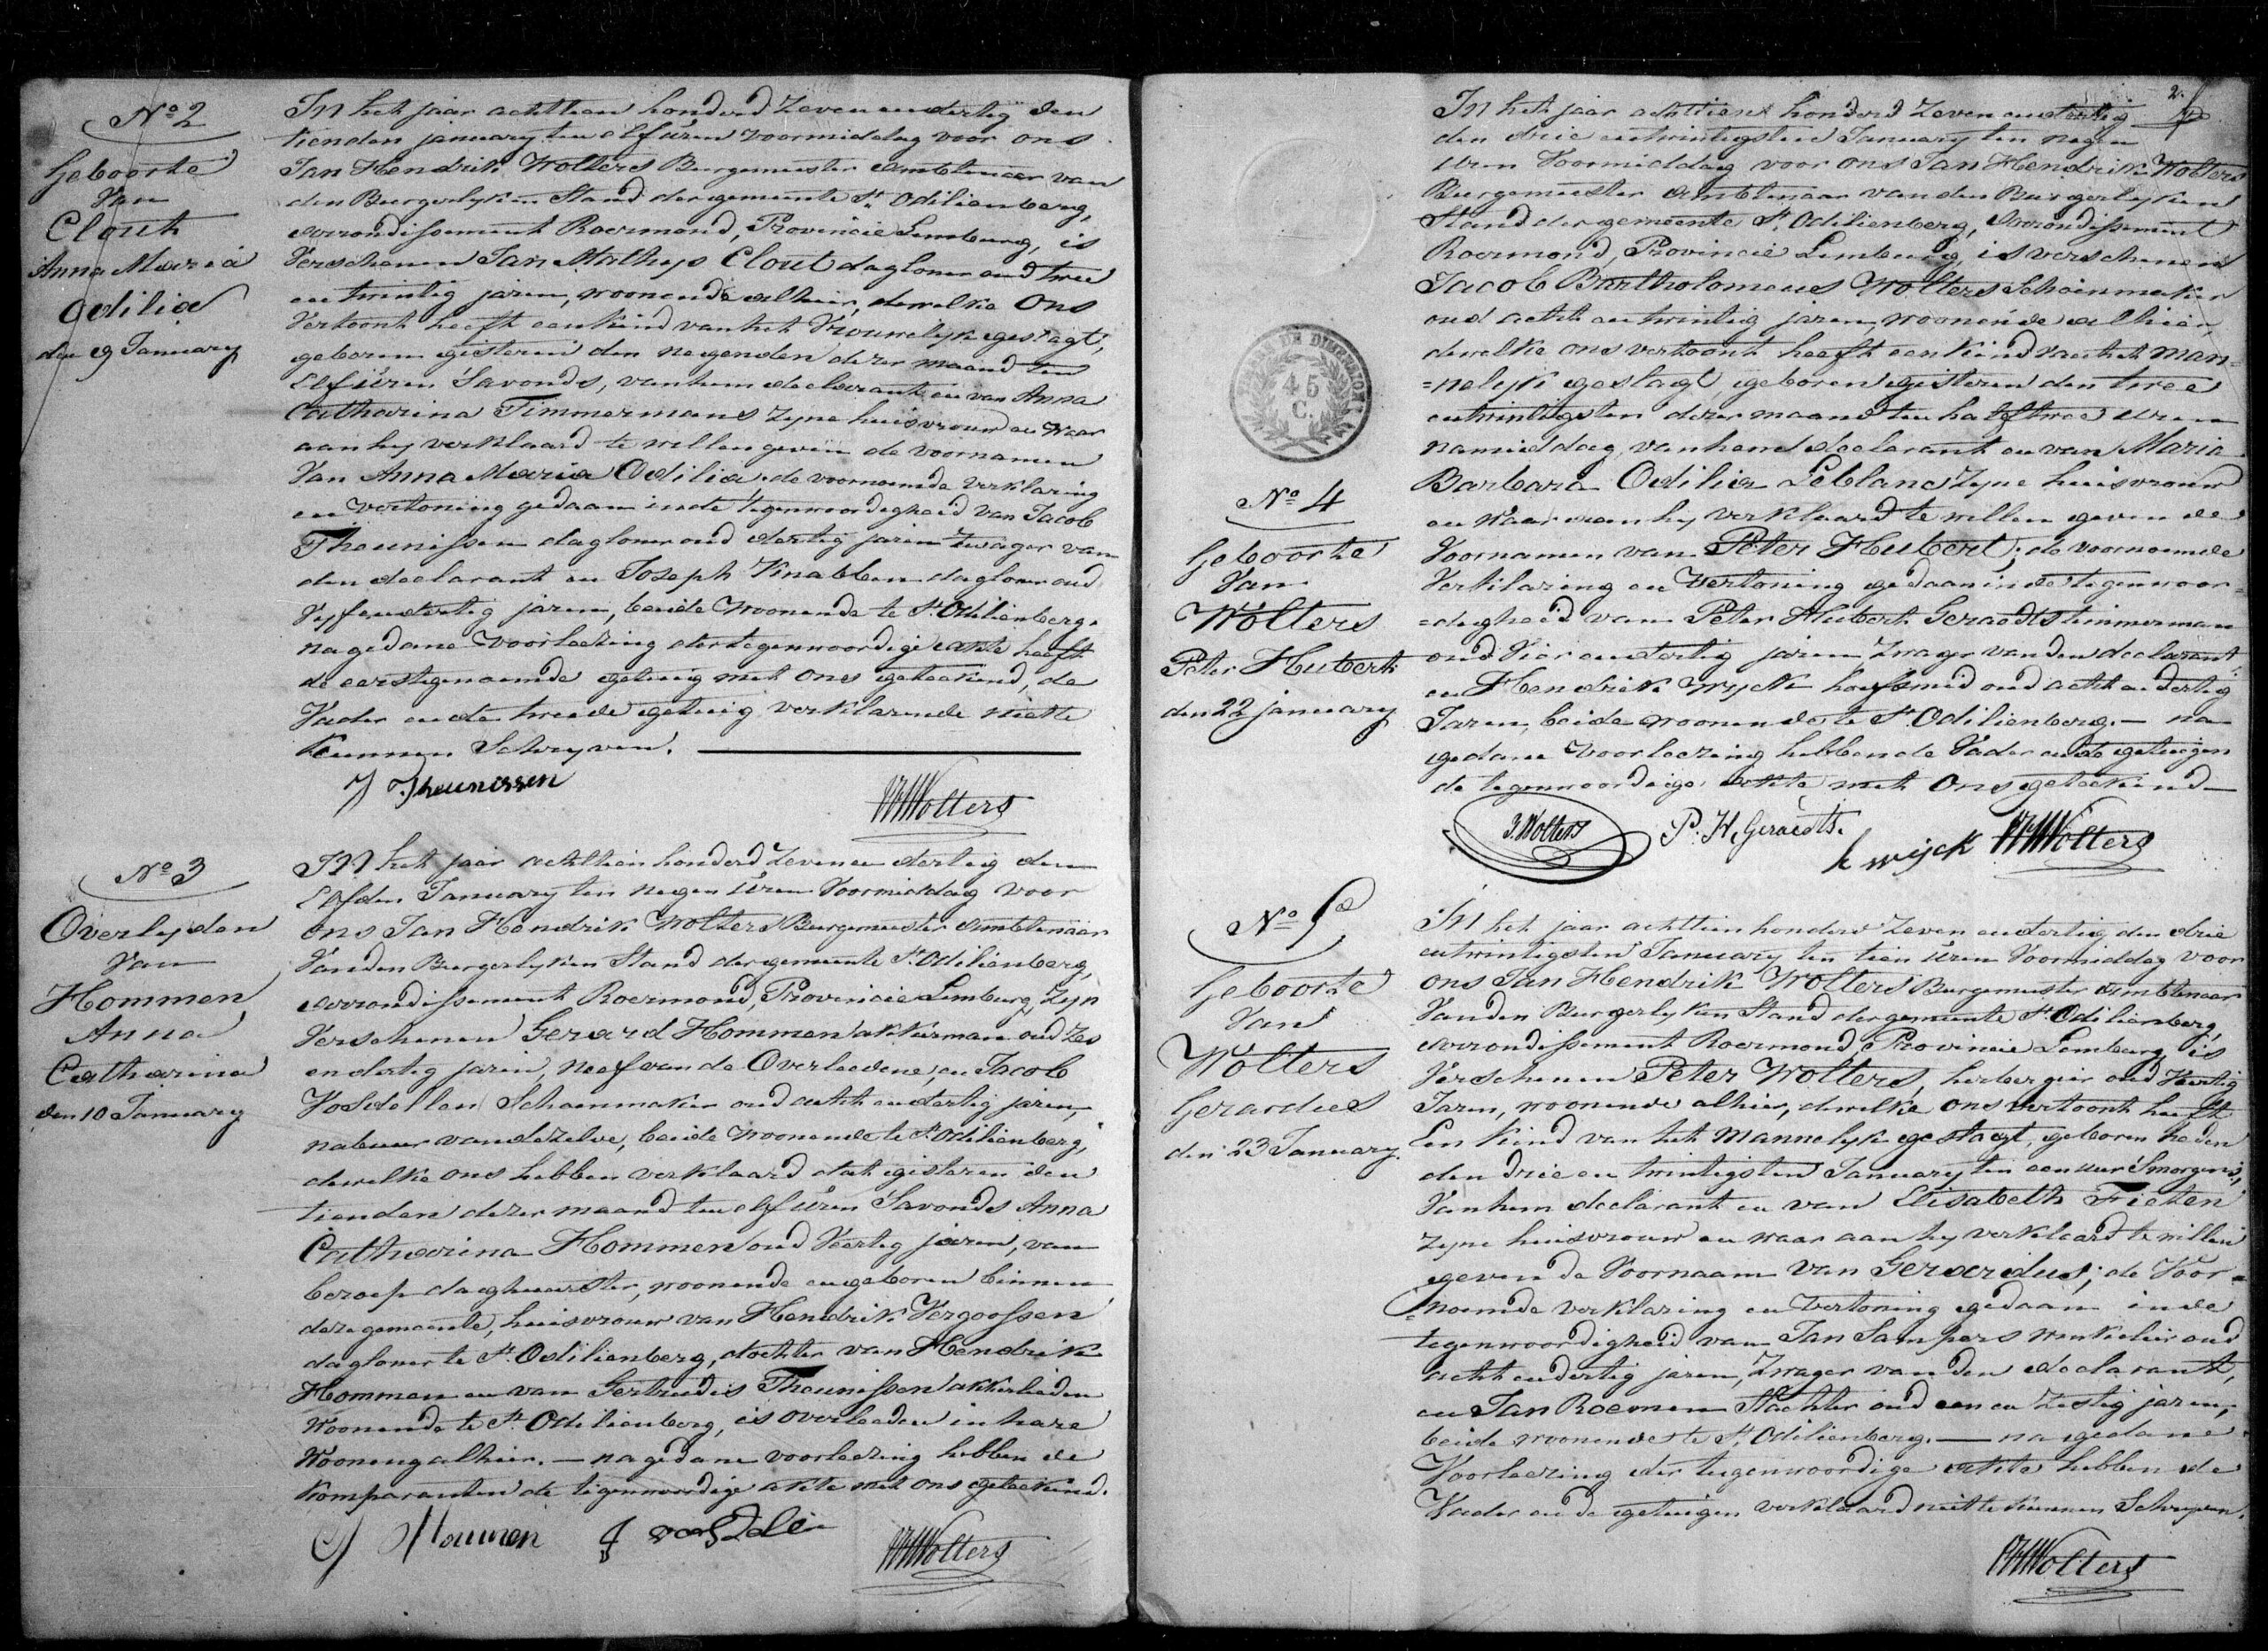 No 2
Geboorte
Van
Clout
Anna Maria
Odilia
den 9 January
In het jaar achttien honderd Zeven en dertig den
tienden january ten elf uren voormiddag voor ons
Jan Hendrik Wolters Burgemeester Ambtenaar van
den Burgerlyken Stand der gemeente St Odilienberg,
arrondissement Roermond, Provincie Limburg, is
Verschenen Jan Mathys Clout dagloner oud twee
en twintig jaren, woonende alhier, dewelke Ons
Vertoont heeft een kind van het Vrouwelyk geslagt,
geboren gisteren den negenden dezer maand ten
Elf uren Savonds, van hem declarant en van Anna
Catharina Timmermans zyne huisvrouw en Waar
aan hy verklaard te willen geven de voornamen
Van Anna Maria Odilia; de voornoemde Verklaring
en Vertoning gedaan in de tegenwoordigheid van Jacob
Theunissen dagloner oud dertig jaren Zwager van
den declarant en Joseph Knabben dagloner oud
Vyf en dertig jaren, beide Woonende te St Odilienberg.
na gedane Voorleezing der tegenwoordige akte heeft
de eerstgenoemde getuig met Ons geteekend, de
Vader en de tweede getuig verklarende niet te
Kunnen Schryven.
J Theunissen
JHWolters
No 3
Overlyden
Van
Hommen
Anna
Catharina
den 10 January
In het jaar achttien honderd Zeven en dertig den
Elfden January ten negen uren Voormiddag voor
ons Jan Hendrik Wolters Burgemeester Ambtenaar
Van den Burgerlyken Stand der gemeente St Odilienberg,
arrondissement Roermond, Provincie Limburg, Zyn
Verschenen Gerard Hommen akkerman oud Zes
en dertig jaren, neef van de Overleedene, en Jacob
Vosdellen Schoenmaker oud acht en dertig jaren,
nabuur van dezelve, beide Woonende te St Odilienberg,
dewelke ons hebben verklaard dat gisteren den
tienden dezer maand ten elf uren Savonds Anna
Catharina Hommen oud Veertig jaren, van
beroep daghuurster, woonende en geboren binnen
deze gemeente, huisvrouw van Hendrik Vergoossen
dagloner te St Odilienberg, dochter van Hendrik
Hommen en van Gertrudis Theunissen akkerlieden
Woonende te St Odilienberg, is overleeden in hare
Wooning alhier. — na gedane voorleezing hebben de
Komparanten de tegenwoordige akte met ons geteekend.
G Hommen
J vosdelle
JHWolters
2.
45
C.
No 4
Geboorte
Van
Wolters
Peter Hubert
den 22 january
In het jaar achttien honderd Zeven en dertig
den drie en twintigsten January ten negen
uren Voormiddag voor ons Jan Hendrik Wolters
Burgemeester Ambtenaar van den Burgerlyken
Stand der gemeente St Odilienberg, Arrondissement
Roermond, Provincie Limburg, is verschenen
Jacob Bartholomeus Wolters Schoenmaker
oud acht en twintig jaren, woonende alhier,
dewelke ons vertoont heeft een Kind van het Man=
=nelyk geslagt, geboren gisteren den twee
en twintigsten dezer maand ten half twee uren
namiddag, van hem declarant en van Maria
Barbara Odilia Leblanc Zyne huisvrouw
en Waar aan hy verklaard te willen geven de
Voornamen van Peter Hubert; de voornoemde
Verklaring en Vertoning gedaan in de tegenwoor=
=digheid van Peter Hubert Geraedts timmerman
oud Vier en dertig jaren Zwager van den declarant
en Hendrik Wyck hoefsmid oud acht en dertig
Jaren, beide woonende te St Odilienberg. — na
gedane Voorleezing hebben de Vader en de getuigen
de tegenwoordige akte met Ons geteekend —
J. Wolters
P. H. Geraedts.
h wyck
JHWolters
No 5
Geboorte
Van
Wolters
Gerardus
den 23 January.
In het jaar achttien honderd Zeven en dertig den drie
en twintigsten January ten tien uren Voormiddag voor
ons Jan Hendrik Wolters Burgemeester Ambtenaar
Van den Burgerlyken Stand der gemeente St Odilienberg,
arrondissement Roermond, Provincie Limburg, is
Verschenen Peter Wolters, herbergier oud Veertig
Jaren, woonende alhier, dewelke ons vertoont heeft
Een Kind van het Mannelyk geslagt, geboren heden
den drie en twintigsten January ten een uur Smorgens,
Van hem declarant en van Elisabeth Fieten
zyne huisvrouw en waar aan hy verklaard te willen
geven de Voornaam Van Gerardus; de Voor=
=noemde verklaring en Vertoning gedaan in de
tegenwoordigheid van Jan Sampers winkelier oud
acht en dertig jaren, Zwager van den declarant,
en Jan Roemen Pachter oud een en Zestig jaren,
beide woonende te St Odilienberg. — na gedane
Voorleezing der tegenwoordige akte hebben de
Vader en de getuigen verklaard niet te Kunnen Schryven.
JHWolters